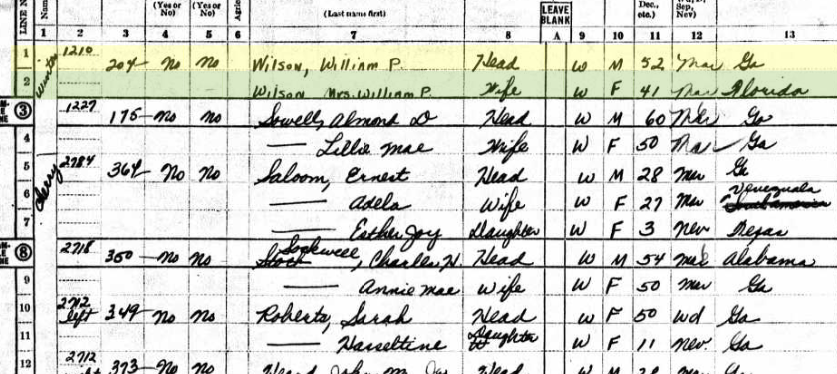 LINE N Nam (Yes or No) (Yes or No) Agric (Last name first) LEAVE BLANK Dec., etc.) Sep, Nov)
1 2 3 4 5 6 7 8 A 9 10 11 12 13
1 1210 204 No No Wilson, William P. Head W M 52 Mar Ga
2 Wilson Mrs. William P. Wife W F 41 Mar Florida
3 1227 175 No No Sowell, Almond D Head W M 60 Mar Ga
4 — Lillie Mae Wife W F 50 Mar Ga
5 2784 364 No No Saloom, Ernest Head W M 28 Mar Ga
6 — Adela Wife W F 27 Mar Venezuela
7 — Esther Joy Daughter W F 3 Nev Texas
8 2718 350 No No Sockwell, Charles H. Head W M 54 Mar Alabama
9 — Annie Mae Wife W F 50 Mar Ga
10 2712 left 349 No No Roberts, Sarah Head W F 50 Wd Ga
11 — Hasseltine Daughter W F 11 Nev. Ga
12 2712 373 No No Head W M